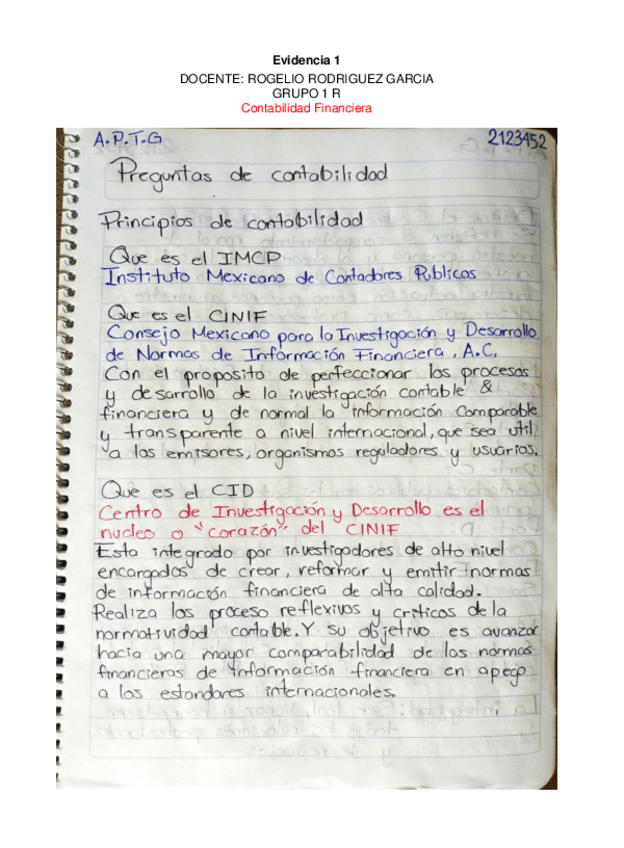 Evidencia 1
DOCENTE: ROGELIO RODRIGUEZ GARCIA
GRUPO 1 R
Contabilidad Financiera
A.P.T.G 2123452
Preguntas de contabilidad
Principios de contabilidad
Que es el IMCP
Instituto Mexicano de Contadores Publicos
Que es el CINIF
Consejo Mexicano para la Investigación y Desarrollo
de Normas de Información Financiera, A.C,
Con el proposito de perfeccionar los procesos
y desarrollo de la investigación contable &
financiera y de normal la información comparable
y transparente a nivel internacional, que sea util
a los emisores, organismos reguladores y usuarios.
Que es el CID
Centro de Investigación y Desarrollo es el
nucleo o "corazón" del CINIF
Esta integrado por investigadores de alto nivel
encargados de crear, reformar y emitir normas
de información financiera de alta calidad.
Realiza los proceso reflexivos y criticos de la
normatividad contable. Y su objetivo es avanzar
hacia una mayor comparabilidad de las normas
financieras de información financiera en apego
a los estandares internacionales.